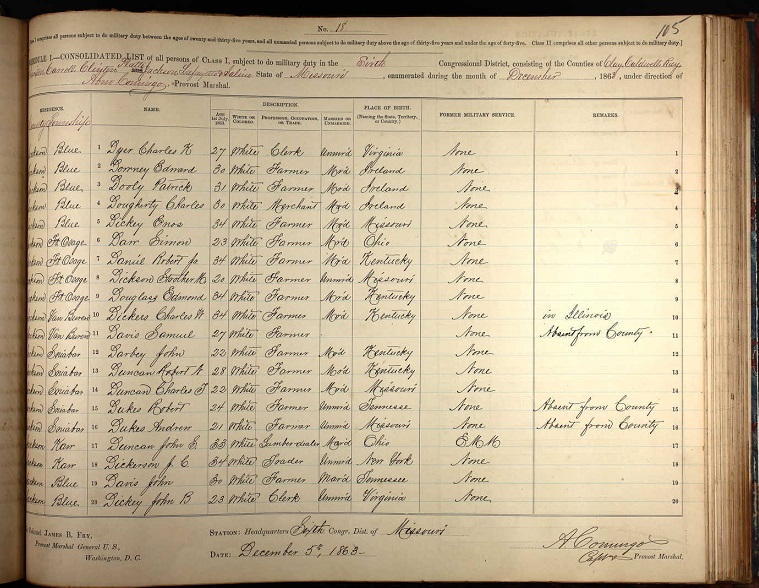 No. 18
105
s I comprises all persons subject to do military duty between the ages of twenty and thirty-five years, and all unmarried persons subject to do military duty above the age of thirty-five years and under the age of forty-five. Class II comprises all other persons subject to military duty.]
EDULE I.—CONSOLIDATED LIST of all persons of CLASS I, subject to do military duty in the Sixth Congressional District, consisting of the Counties of Clay, Caldwell, Ray
Carroll Clinton Platte Jackson Lafayette Saline State of Missouri, enumerated during the month of December, 1863, under direction of
Abm Comingo, Provost Marshal.
RESIDENCE. NAME. DESCRIPTION. PLACE OF BIRTH. (Naming the State, Territory, or Country.) FORMER MILITARY SERVICE. REMARKS.
AGE 1st July, 1863. WHITE OR COLORED. PROFESSION, OCCUPATION, OR TRADE. MARRIED OR UNMARRIED.
Blue 1 Dyer Charles K 27 White Clerk Unmrd Virginia None 1
Blue 2 Downey Edward 30 White Farmer Mrd Ireland None 2
Blue 3 Dooly Patrick 31 White Farmer Mrd Ireland None 3
Blue 4 Dougherty Charles 30 White Merchant Mrd Ireland None 4
Blue 5 Dickey Enos 34 White Farmer Mrd Missouri None 5
Ft Osage 6 Darr Simon 23 White Farmer Mrd Ohio None 6
Ft Osage 7 Daniel Robert Jr 34 White Farmer Mrd Kentucky None 7
Ft Osage 8 Dickson 20 White Farmer Unmrd Missouri None 8
Ft Osage 9 Douglass Edmond 34 White Farmer Mrd Kentucky None 9
Van Buren 10 Dickers Charles W 34 White Farmer Mrd Kentucky None in Illinois 10
Van Buren 11 Davis Samuel 27 White Farmer None Absent from County. 11
Sniabar 12 Darbey John 22 White Farmer Mrd Kentucky None 12
Sniabar 13 Duncan Robert W 28 White Farmer Mrd Kentucky None 13
Sniabar 14 Duncan Charles T 22 White Farmer Mrd Missouri None 14
Sniabar 15 Dukes Robert 24 White Farmer Unmrd Tennessee None Absent from County 15
Sniabar 16 Dukes Andrew 21 White Farmer Unmrd Missouri None Absent from County 16
Kaw 17 Duncan John S. 33 White Lumber dealer Mard Ohio E.M.M 17
Kaw 18 Dickerson J. C 34 White Unmrd New York None 18
Blue 19 Davis John 30 White Farmer Mard Tennessee None 19
Blue 20 Dickey John B 23 White Clerk Unmrd Virginia None 20
Colonel JAMES B. FRY,
Provost Marshal General U. S.,
Washington, D. C.
STATION: Headquarters Sixth Congr. Dist. of Missouri
DATE: December 5th, 1863
A Comingo
Capt & Provost Marshal.